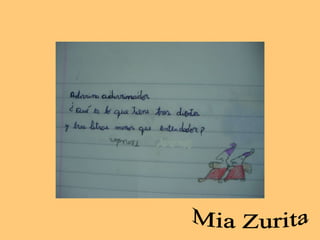 Adivina adivinador
¿Qué es lo que tiene tres dientes
y tres letras menos que entendedor?
Tenedor
Mia Zurita